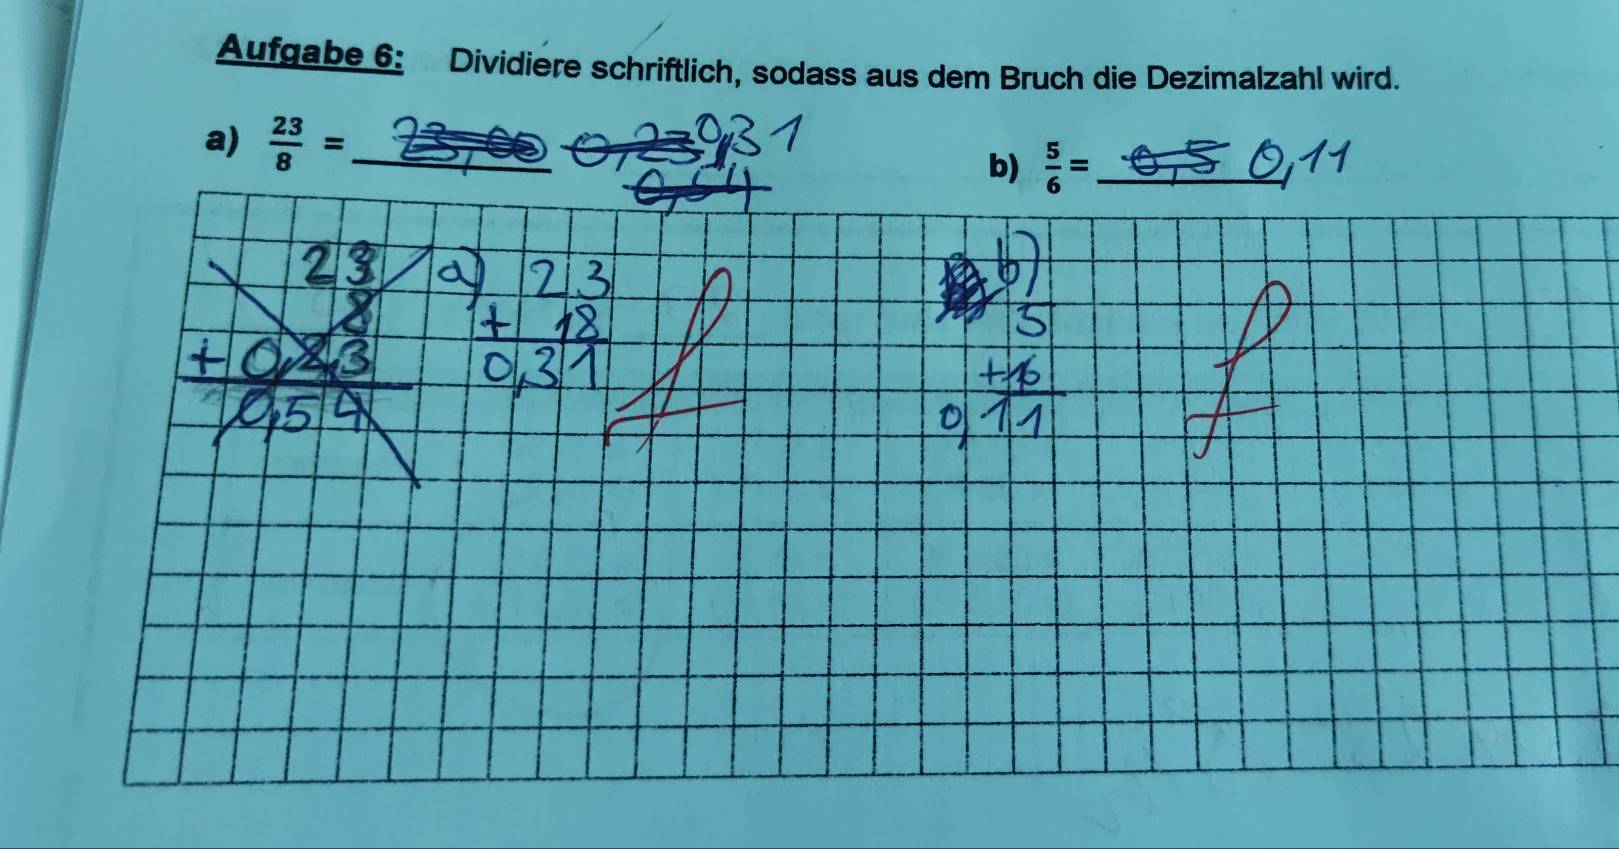 Aufgabe 6: Dividiere schriftlich, sodass aus dem Bruch die Dezimalzahl wird.
a) 23/8 = 23,00 0,23 0,31
0,54
b) 5/6 = 0,5 0,11
23
8
+ 0,23
0,54
a) 23
+ 18
0,31
b)
5
+ 16
0,11
f
f